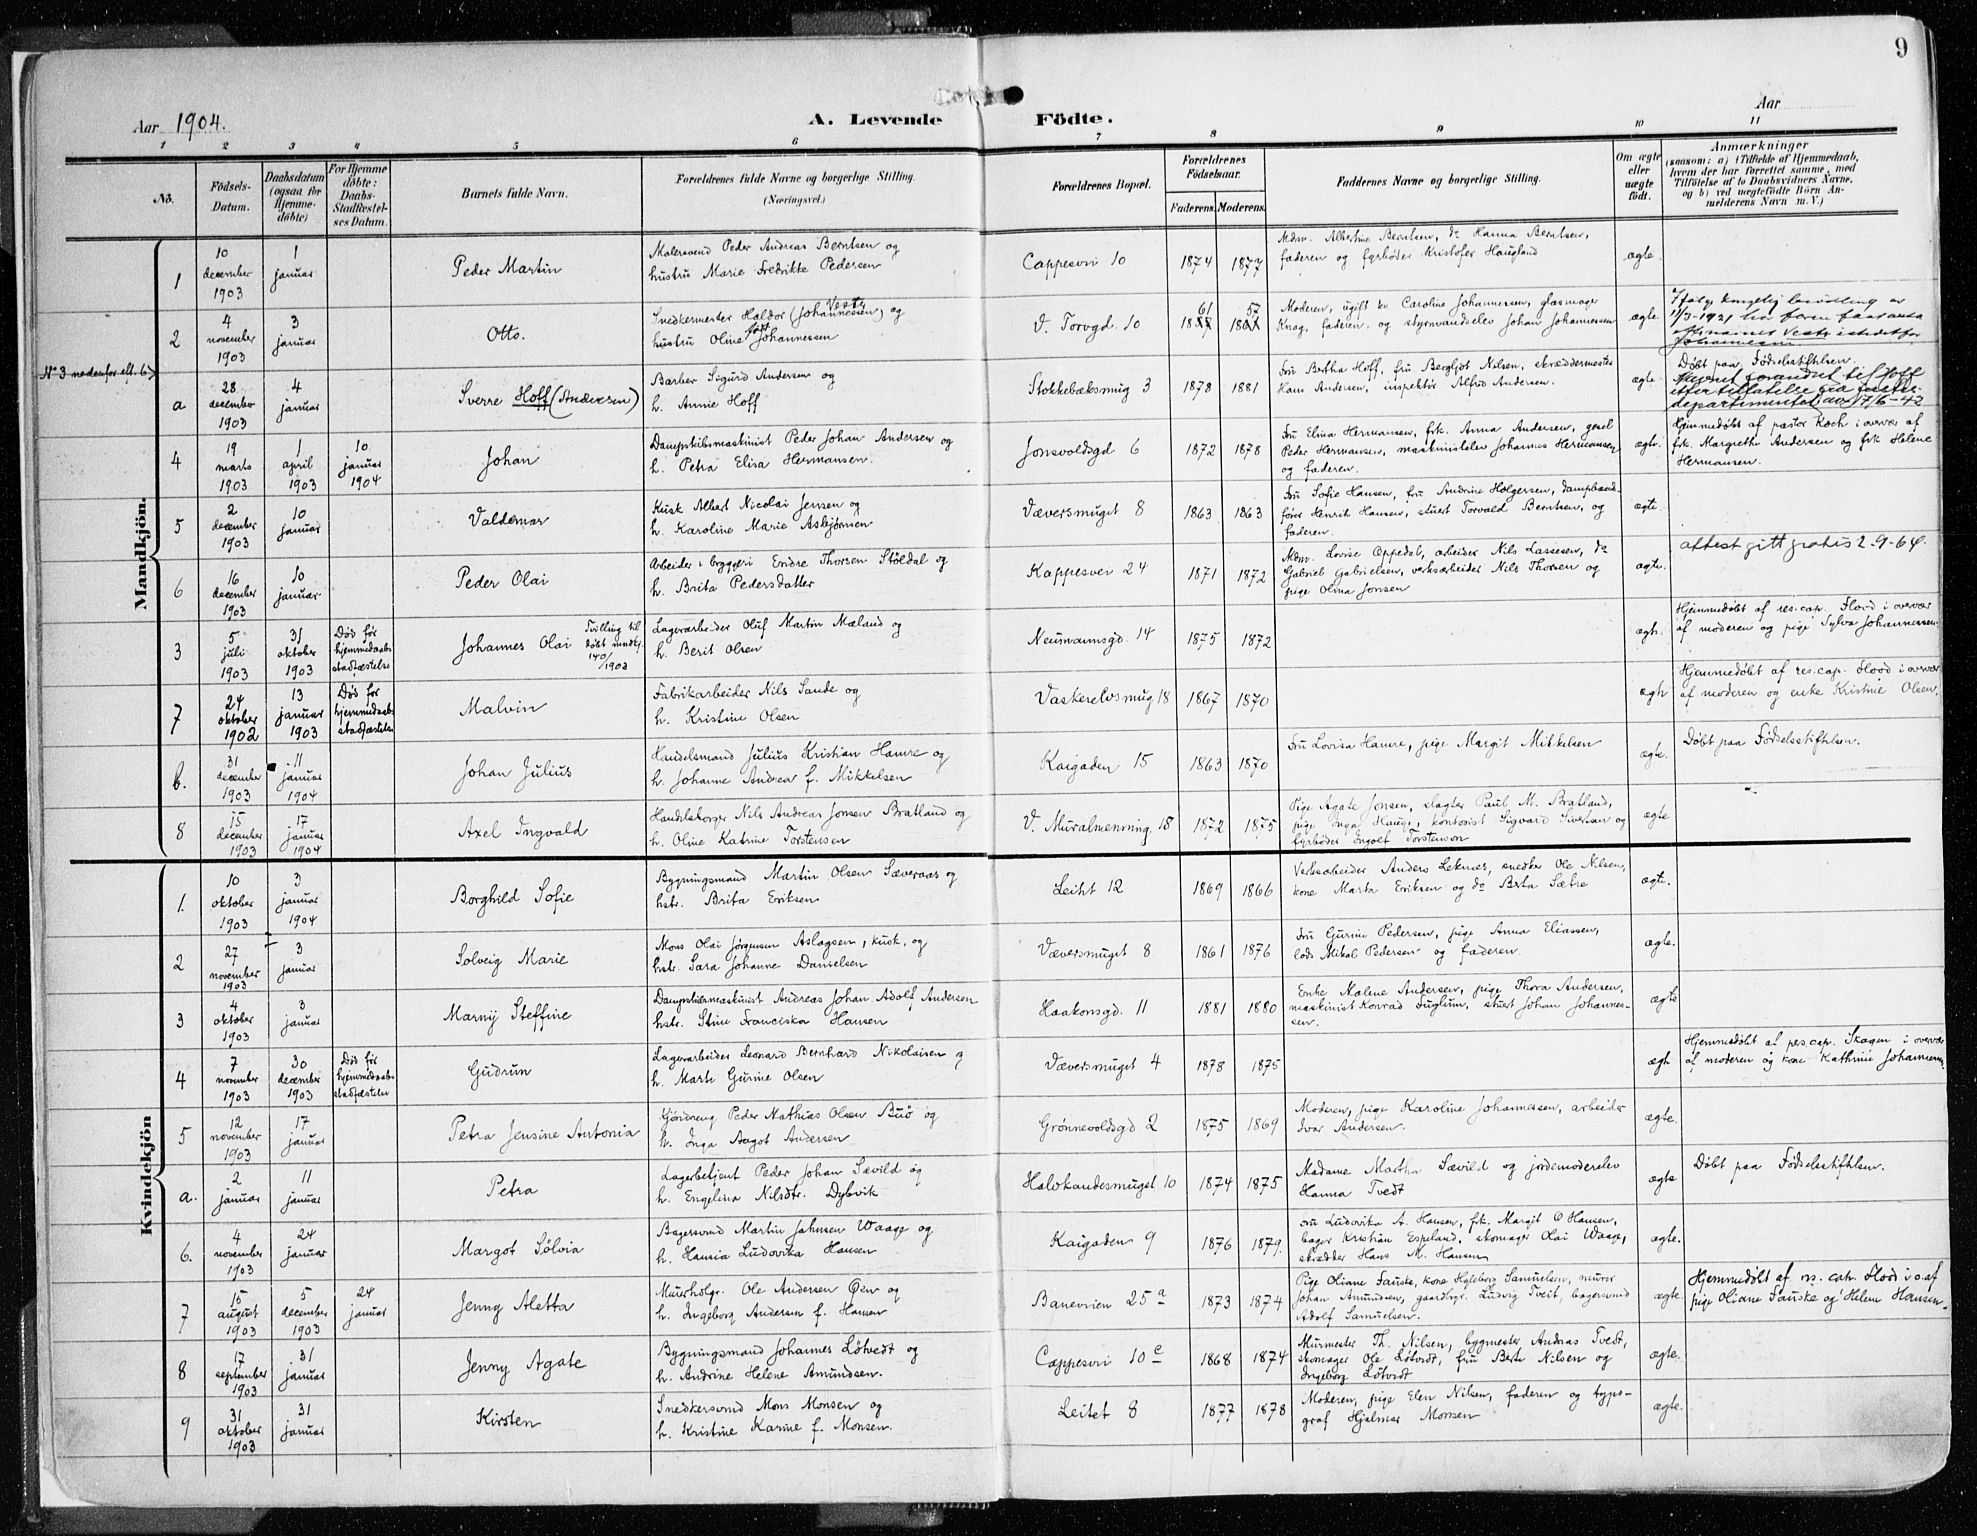 9
Aar 1904.
A. Levende Födte.
Aar
1 2 3 4 5 6 7 8 9 10 11
No.
Födsels-Datum.
Daabsdatum (ogsaa för Hjemme-döbte)
For Hjemme döbte: Daabs-Stadfæstel-ses Datum.
Barnets fulde Navn.
Forældrenes fulde Navne og borgerlige Stilling.
(Næringsvei.)
Forældrenes Bopæl.
Forældrenes Födselsaar.
Faderens. Moderens.
Faddernes Navne og borgerlige Stilling.
Om ægte eller uægte födt.
Anmærkninger
(saasom: a) i Tilfælde af Hjemmedaab,
hvem der har forrettet samme, med
Tilföielse af to Daabsvidners Navne,
og b) ved uægtefödte Börn An-
melderens Navn m. V.)
Mandkjön.
1 10 december 1903 1 januar Peder Martin
Malersvend Peder Andreas Berntsen og
hustru Marie Fredrikke Pedersen
Cappesvei 10 1874 1877
Mdm. Albertine Berntsen, do Hanna Berntsen,
faderen og fyrbøder Kristofer Haugland
ægte.
2 4 november 1903 3 januar Otto.
Snedkermester Haldor (Johannessen) Veste og
hustru Oline født Johannessen
V. Torvgd. 10 61 57
Moderen, ugift kv Caroline Johannessen, glasmager
Knag, faderen og styrmandselev Johan Johannessen
ægte.
Ifølge kongelig bevilling av
11/3-1921 har foren faat anta
efternavnet Veste istedetfor
Johannessen
No 3 nedenfor eft. 6
a 28 december 1903 4 januar Sverre Hoff (Andersen)
Barber Sigurd Andersen og
h. Annie Hoff
Stokkebæksmug 3 1878 1881
Fru Bertha Hoff, fru Bergljot Nilsen, skræddermester
Hans Andersen, inspektør Alfred Andersen.
ægte
Døbt paa Fødselsstiftelsen.
Navnet forandret til Hoff
etter tillatelse fra justis-
departementet av 17/6-42
4 19 marts 1903 1 april 1903 10 januar 1904 Johan
Dampskibsmaskinist Peder Johan Andersen og
h. Petra Elisa Hermansen.
Jonsvoldsgd 6 1872 1878
Fru Elina Hermansen, frk. Anna Andersen, gesel
Peder Hermansen, maskinistelev Johannes Hermansen
og faderen.
ægte.
Hjemmedøbt af pastor Koch i overvær af
frk. Margrethe Andersen og frk Helene
Hermansen.
5 2 december 1903 10 januar Valdemar
Kusk Albert Nicolai Jensen og
h. Karoline Marie Asbjørnsen
Væversmuget 8 1863 1863
Fru Sofie Hansen, fru Andrine Holgersen, dampbaad-
fører Henrik Hansen, stuert Torvald Berntsen, og
faderen.
ægte.
6 16 december 1903 10 januar Peder Olai
Arbeider i bryggeri Endre Thorsen Støldal og
h. Brita Pedersdatter
Kappesvei 24 1871 1872
Mdm. Lovise Oppedal, arbeider Nils Lassesen, do
Gabriel Gabrielsen, verksarbeider Nils Thorsen og
pige Olina Jonsen
ægte.
attest gitt gratis 2-9-64.
3 5 juli 1903 31 oktober 1903 Død før hjemmedaabs stadfæstelse Johannes Olai Tvilling til døbt mndkj. 140/1903
Lagerarbeider Oluf Martin Mæland og
h. Berit Olsen
Neumannsgd. 14 1875 1872
ægte.
Hjemmedøbt af res. cap. Flood i overvær
af moderen og pige Sylva Johannessen
7 24 oktober 1902 13 januar 1903 Død før hjemmedaabs stadfæstelse Malvin
Fabrikarbeider Nils Sande og
h. Kristine Olsen
Vaskerelvsmug 18 1867 1870
ægte
Hjemmedøbt af res. cap. Flood i overvær
af moderen og enke Kristine Olsen.
b. 31 december 1903 11 januar 1904 Johan Julius
Handelsmand Julius Kristian Hamre og
h. Johanne Andrea f. Mikkelsen
Kaigaden 15 1863 1870
Fru Lovisa Hamre, pige Margit Mikkelsen
ægte.
Døbt paa Fødselsstiftelsen.
8 15 december 1903 17 januar 1904 Axel Ingvald
Handelsborger Nils Andreas Jonsen Bratland og
h. Oline Katrine Torstensen
V. Muralmenning 18 1872 1875
Pige Agate Jonsen, slagter Paul M. Bratland,
pige Inga Hauge, kontorist Sigvard Sivertsen og
fyrbøder Ingolf Torstenson
ægte
Kvindekjön
1. 10 oktober 1903 3 januar 1904 Borghild Sofie
Bygningsmand Martin Olsen Sæveraas og
hstr. Brita Eriksen
Leitet 12 1869 1866
Verksarbeider Anders Leknes, snedker Ole Nilsen,
kone Marta Eriksen og do Brta Sætre
ægte.
2 27 november 1903 3 januar Solveig Marie
Mons Olai Jørgensen Aslagsen, kusk, og
hstr. Sara Johanne Danielsen
Væversmuget 8 1861 1876
Fru Gurine Pedersen, pige Anna Eliassen,
lods Mikal Pedersen og faderen.
ægte.
3 4 oktober 1903 3 januar Marny Steffine
Dampskibsmaskinist Andreas Johan Adolf Andersen
hstr. Stine Franciska Hansen
Haakonsgd. 11 1881 1880
Enke Malene Andersen, pige Thora Andersen,
maskinist Konrad Fuglum, stuert Johan Johannes-
sen.
ægte
4 7 november 1903 30 december 1903 Død før hjemmedaabs stadfæstelse Gudrun
Lagerarbeider Leonard Bernhard Nikolaisen og
h. Marte Gurine Olsen
Væversmuget 4 1878 1875
ægte
Hjemmedøbt af pers. cap. Skagen i overvær
af moderen og kone Kathrine Johannessen
5 12 november 1903 17 januar Petra Jensine Antonia
Gaardreng Peder Mathias Olsen Buø og
h. Inga Aagot Andersen
Grønnevoldsgd 2 1875 1869
Moderen, pige Karoline Johannessen, arbeider
Ivar Andersen.
ægte.
a. 2 januar 11 januar Petra
Lagerbetjent Peder Johan Sævild og
h. Engelina Nilsdtr. Dybvik
Halvkandesmuget 10 1874 1875
Madame Martha Sævild og jordemoderelev
Hanna Tvedt
ægte
Døbt paa Fødselsstiftelsen.
6. 4 november 1903 24 januar Margot Sølvia
Bagersvend Martin Johnsen Waage og
h. Hansia Ludovika Hansen
Kaigaden 9 1876 1879.
Fru Ludovika A. Hansen, frk. Margit O Hansen,
bager Kristian Espeland, skomager Olai Waage,
skrædder Hans M. Hansen
ægte.
7 15 august 1903 5 december 1903 24 januar Jenny Aletta
Murerholgr. Ole Andersen Øen og
h. Ingeborg Andersen f. Hansen
Baneveien 25 a 1873 1874
Pige Oliane Fauske, kone Ingeborg Samuelsen, murer
Johan Amundsen, gaardbgr. Ludvig Tveit, bagersvend
Adolf Samuelsen.
ægte.
Hjemmedøbt af res. cap. Flood i o. af
pige Oliane Fauske og Helene Hansen.
8 17 september 1903 31 januar Jenny Agate
Bygningsmand Johannes Løtvedt og
h. Andrine Helene Amundsen.
Cappesvei 10 c 1868 1874
Murmester Th. Nilsen, bygmester Andreas Tvedt,
skomager Ole Løtvedt, fru Berte Nilsen og
Ingeborg Løtvedt
ægte.
9 31 oktober 1903 31 januar Kirsten
Snedkersvend Mons Monsen og
h. Kristine Karine f. Monsen.
Leitet 8 1877 1878
Moderen, pige Elen Nilsen, faderen og typo-
graf Hjalmar Monsen
ægte.